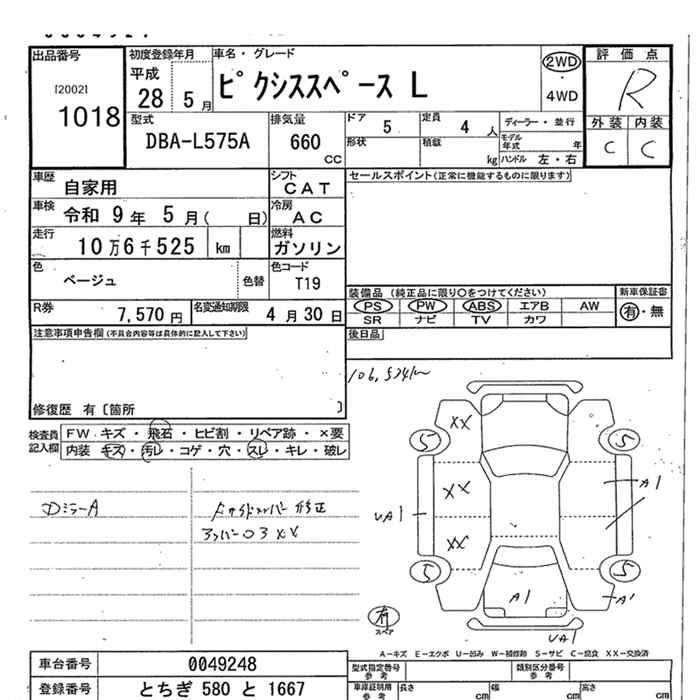 出品番号
[2002]
1018
初度登録年月
平成
28 5 月
車名・グレード
ピクシススペース L
2WD
・
4WD
評価点
R
外装 内装
C C
型式
DBA-L575A
排気量
660
CC
ドア 5
定員 4 人
形状
積載 kg
ディーラー・並行
モデル年式 年
ハンドル 左・右
車歴 自家用
シフト CAT
車検 令和 9 年 5 月( 日)
冷房 AC
走行 10万6千525 km
燃料 ガソリン
色 ベージュ 色替
色コード T19
R券 7,570 円
名変通知期限 4 月 30 日
セールスポイント(正常に機能するものに限ります)
装備品 (純正品に限り○をつけてください)
PS PW ABS エアB AW
SR ナビ TV カワ
新車保証書
有・無
後日品
注意事項申告欄(不具合内容等は具体的に記入して下さい)
修復歴 有〔箇所 〕
106,524km
検査員記入欄
FW キズ・飛石・ヒビ割・リペア跡・×要
内装 キズ・汚レ・コゲ・穴・スレ・キレ・破レ
DミラーA
修正
XX
XX
XX
5
5
5
5
UA1
A1
A1
A1
UA1
有
スペア
A-キズ E-エクボ U-凹み W-補修跡 S-サビ C-腐食 XX-交換済
車台番号 0049248
登録番号 とちぎ 580 と 1667
型式指定番号
参考
類別区分番号
参考
車庫証明用
参考
長さ cm
幅 cm
高さ cm